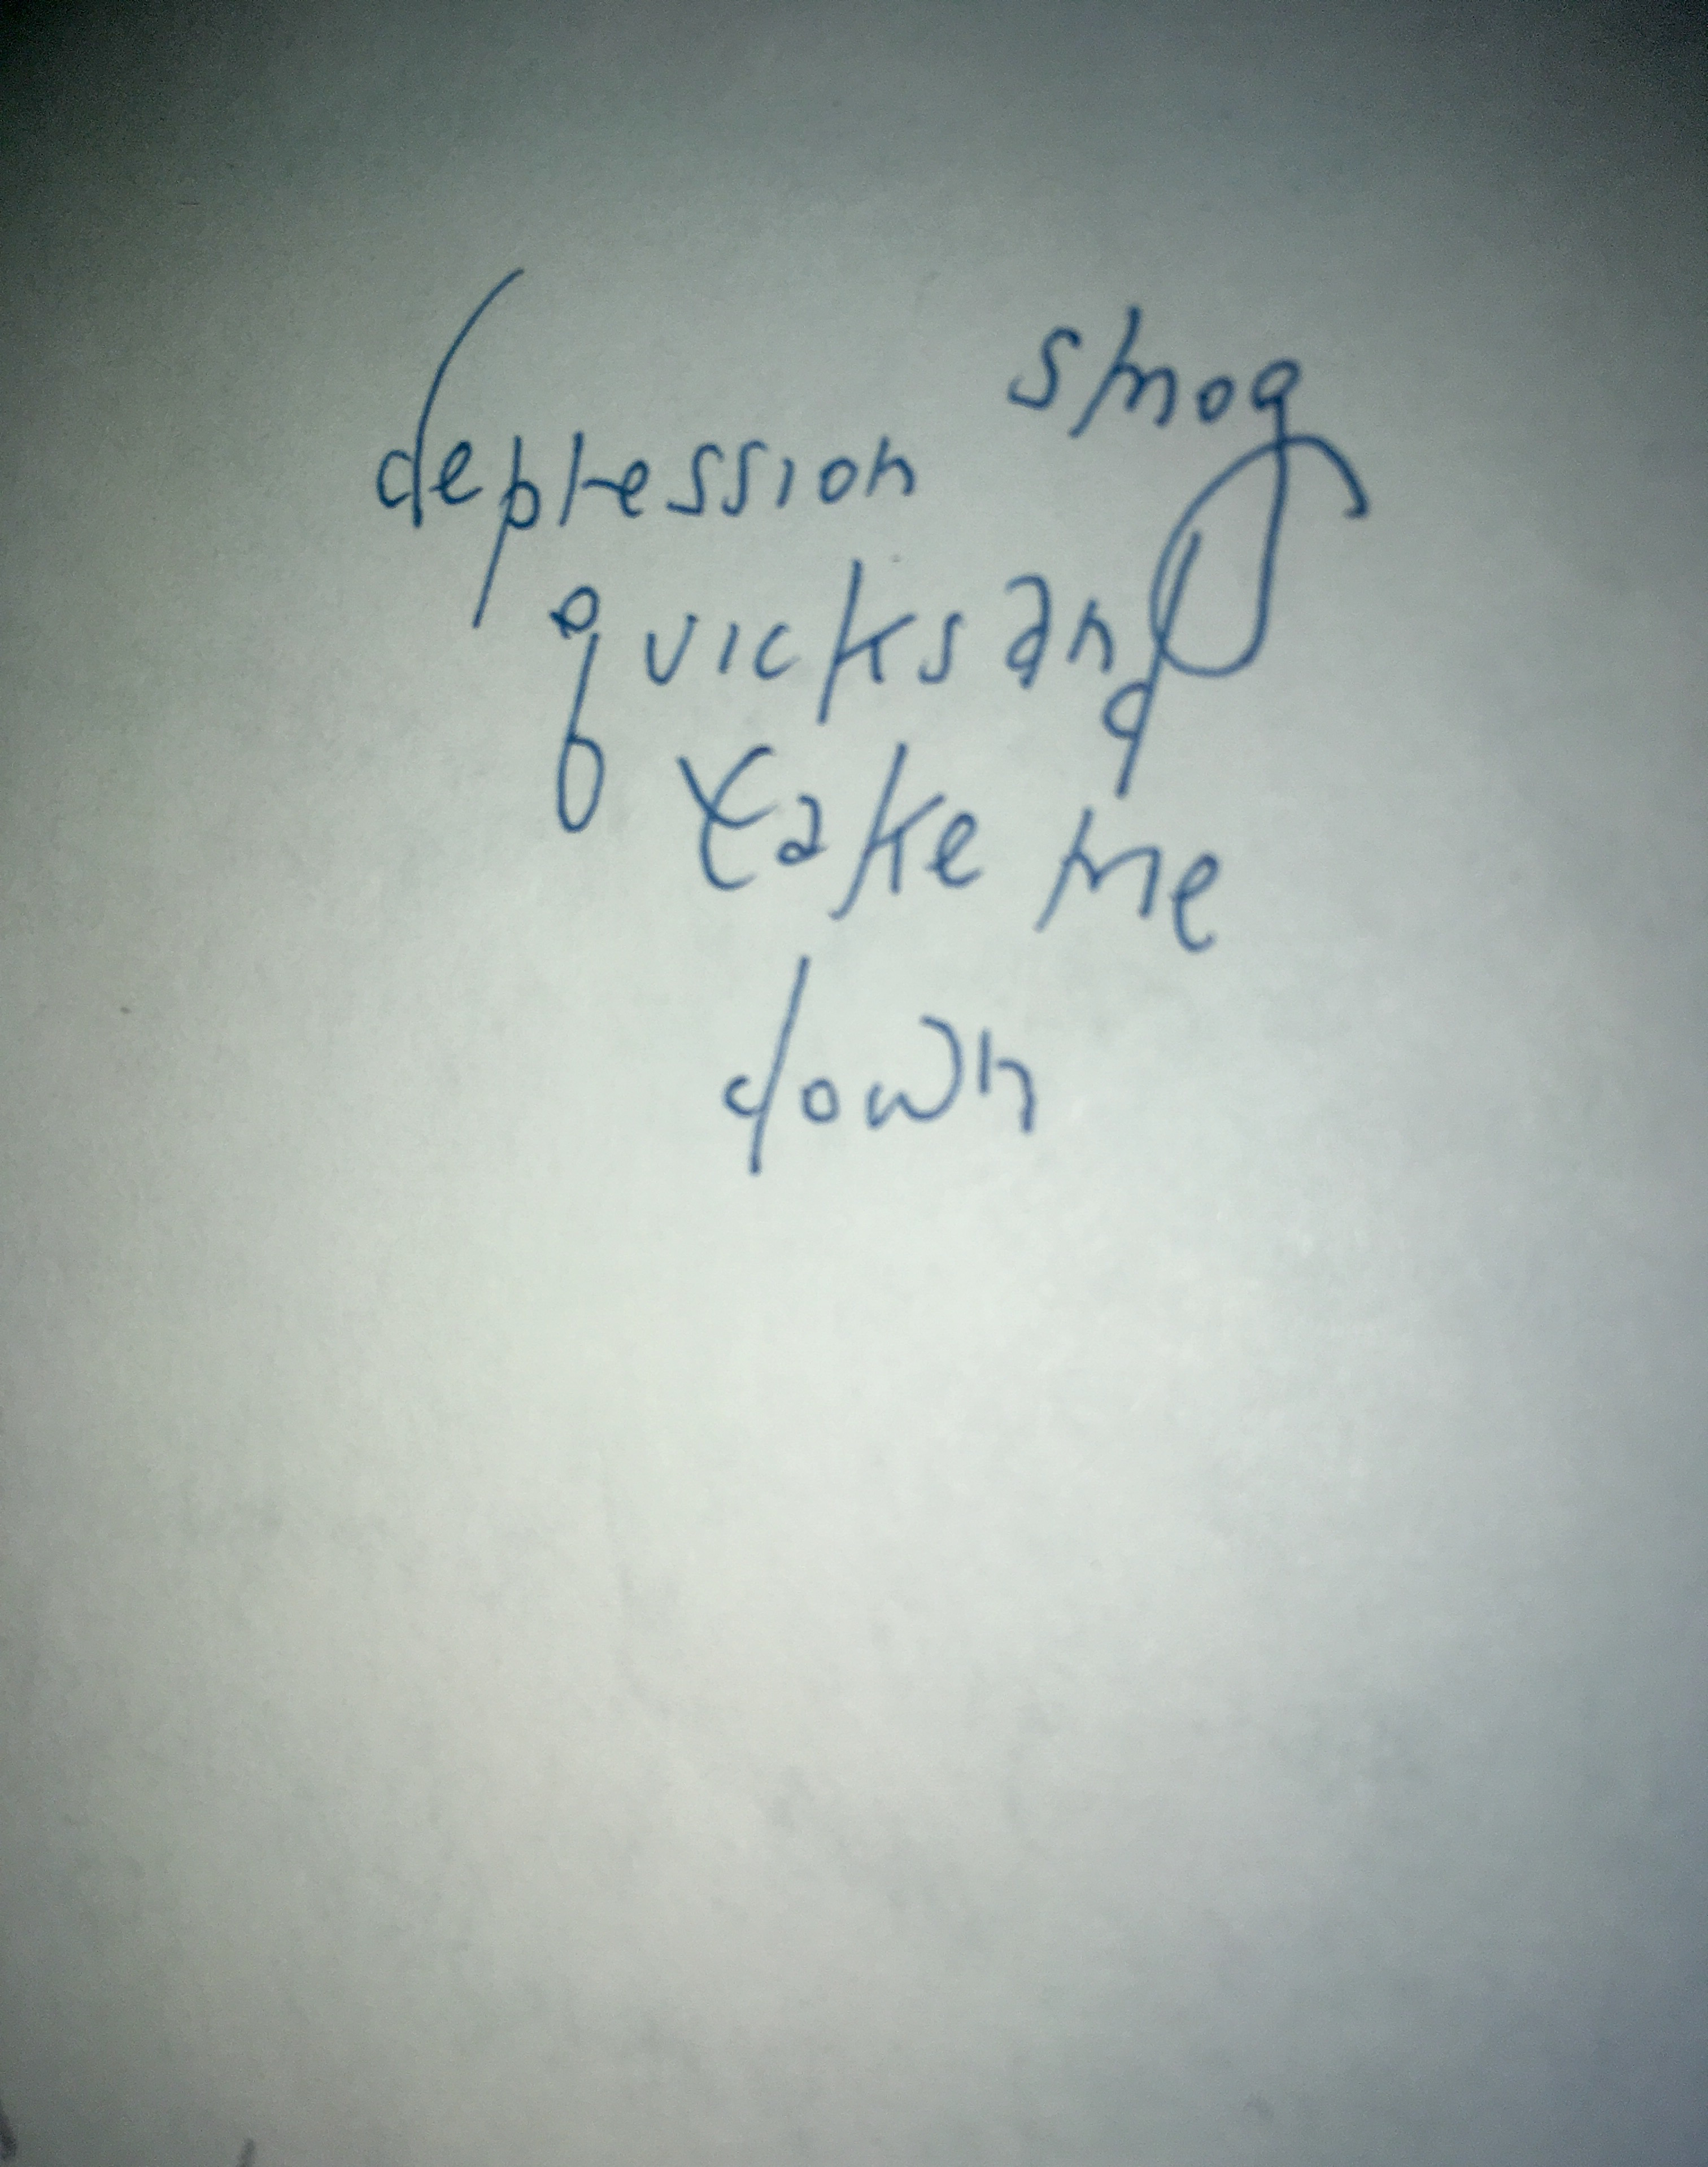 depression smog
quicksand
take me
down